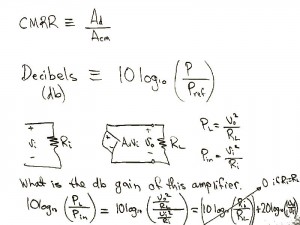 CMRR ≡ Ad / Acm
Decibels ≡ 10 log10 (P / Pref)
(db)
+ Vi - Ri
AvVi + Vo - RL
PL = Vo² / RL
Pin = Vi² / Ri
What is the db gain of this amplifier.
0 if Ri = RL
10 log10 (PL / Pin) = 10 log10 (Vo²/RL / Vi²/Ri) = 10 log (Ri / RL) + 20 log (Vo/Vi)